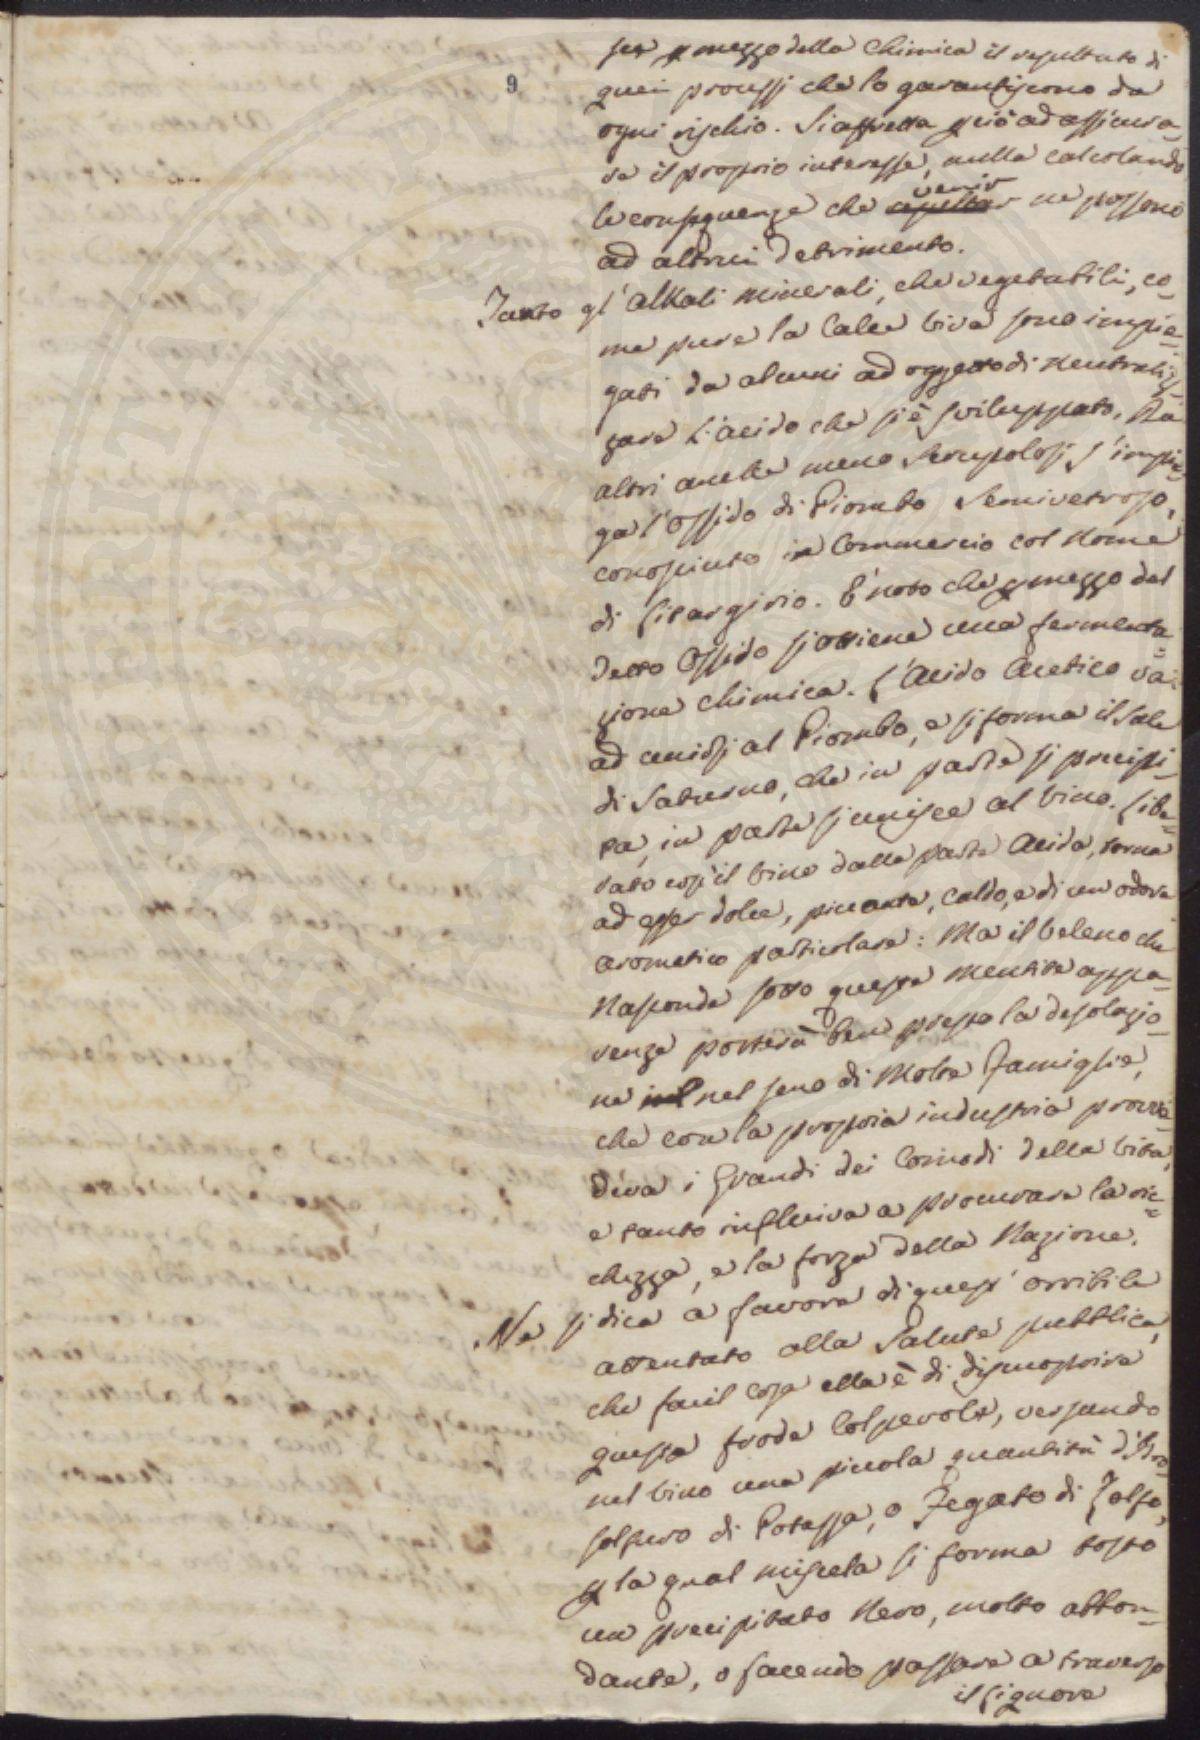 per p mezzo della Chimica il resultato di
9
quei processi che lo garantiscono da
ogni rischio. Si affretta perciò ad assicura-
re il proprio interesse, nulla calcolando
le conseguenze che venir ne possono
ad altrui detrimento.
Tanto gl' alkali minerali, che vegetabili, co-
me pure la Calce viva sono impie-
gati da alcuni ad oggetto di neutraliz-
zare l'acido che si è sviluppato. Da
altri anche meno scrupolosi s'impie-
ga l'Ossido di Piombo semivetroso,
conosciuto in Commercio col nome
di litargirio. È noto che p mezzo del
detto Ossido si ottiene una fermenta-
zione chimica. L'Acido Acetico va
ad unirsi al Piombo, e si forma il Sale
di Saturno, che in parte si precipi-
ta, in parte si unisce al vino. Libe-
rato così il vino dalla parte Acida, torna
ad esser dolce, piccante, caldo, e di un odore
aromatico particolare: Ma il veleno che
nasconde sotto questa mentita appa-
renza porterà ben presto la desolazio-
ne nel seno di molte Famiglie,
che con la propria industria provve-
deva i Grandi dei Comodi della vita,
e tanto influiva a procurare la ric-
chezza, e la forza della Nazione.
Ne si dica a favore di quest' orribile
attentato alla Salute pubblica,
che facil cosa ella è di discuoprire
questa frode Colpevole, versando
nel vino una piccola quantità d'Idro-
solfuro di Potassa, o Fegato di Zolfo,
p la qual miscela si forma tosto
un precipitato nero, molto abbon-
dante, o facendo passare a traverso
il liquore